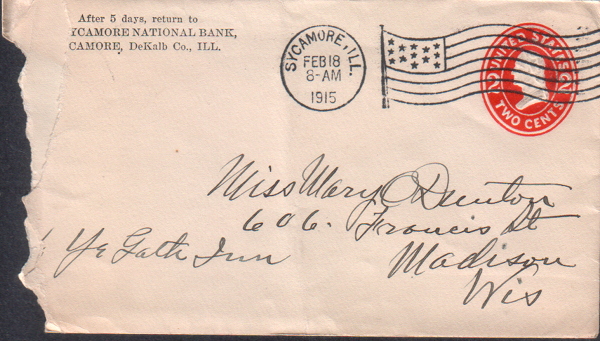 After 5 days, return to
YCAMORE NATIONAL BANK,
CAMORE, DeKalb Co., ILL.
SYCAMORE, ILL.
FEB 18
8-AM
1915
UNITED STATES
2 2
TWO CENTS
Miss Mary O Dunton
606. Francis St
Ye Gath Inn
Madison
Wis